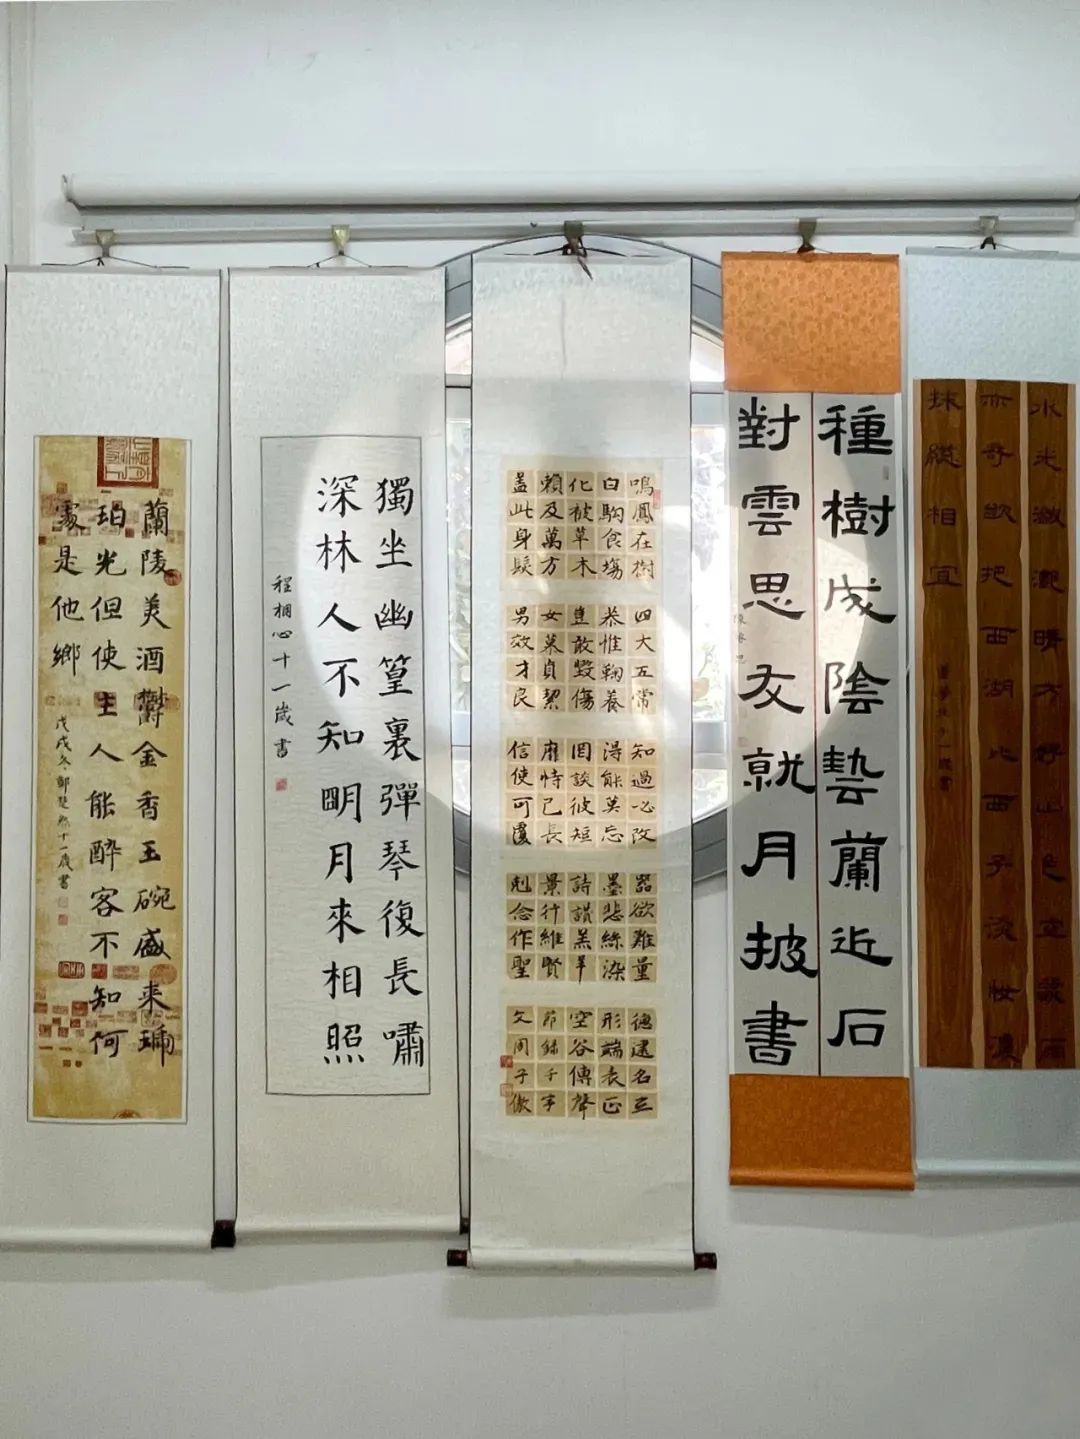 蘭陵美酒鬱金香玉碗盛来琥
珀光但使主人能醉客不知何
處是他鄉
戊戌冬鄭楚十一歲書
獨坐幽篁裏彈琴復長嘯
深林人不知明月來相照
程心十一歲書
鳴鳳在樹
白駒食場
化被草木
賴及萬方
蓋此身髮
四大五常
恭惟鞠養
豈敢毀傷
女慕貞絜
男效才良
知過必改
得能莫忘
罔談彼短
靡恃己長
信使可覆
器欲難量
墨悲絲染
詩讃羔羊
景行維賢
剋念作聖
德建名立
形端表正
空谷傳聲
節錄千字
文周子傲
種樹成陰藝蘭近石
對雲思友就月披書
水光瀲灔晴方好山色空濛雨
亦奇欲把西湖比西子淡妝濃
抹總相宜
十一歲書